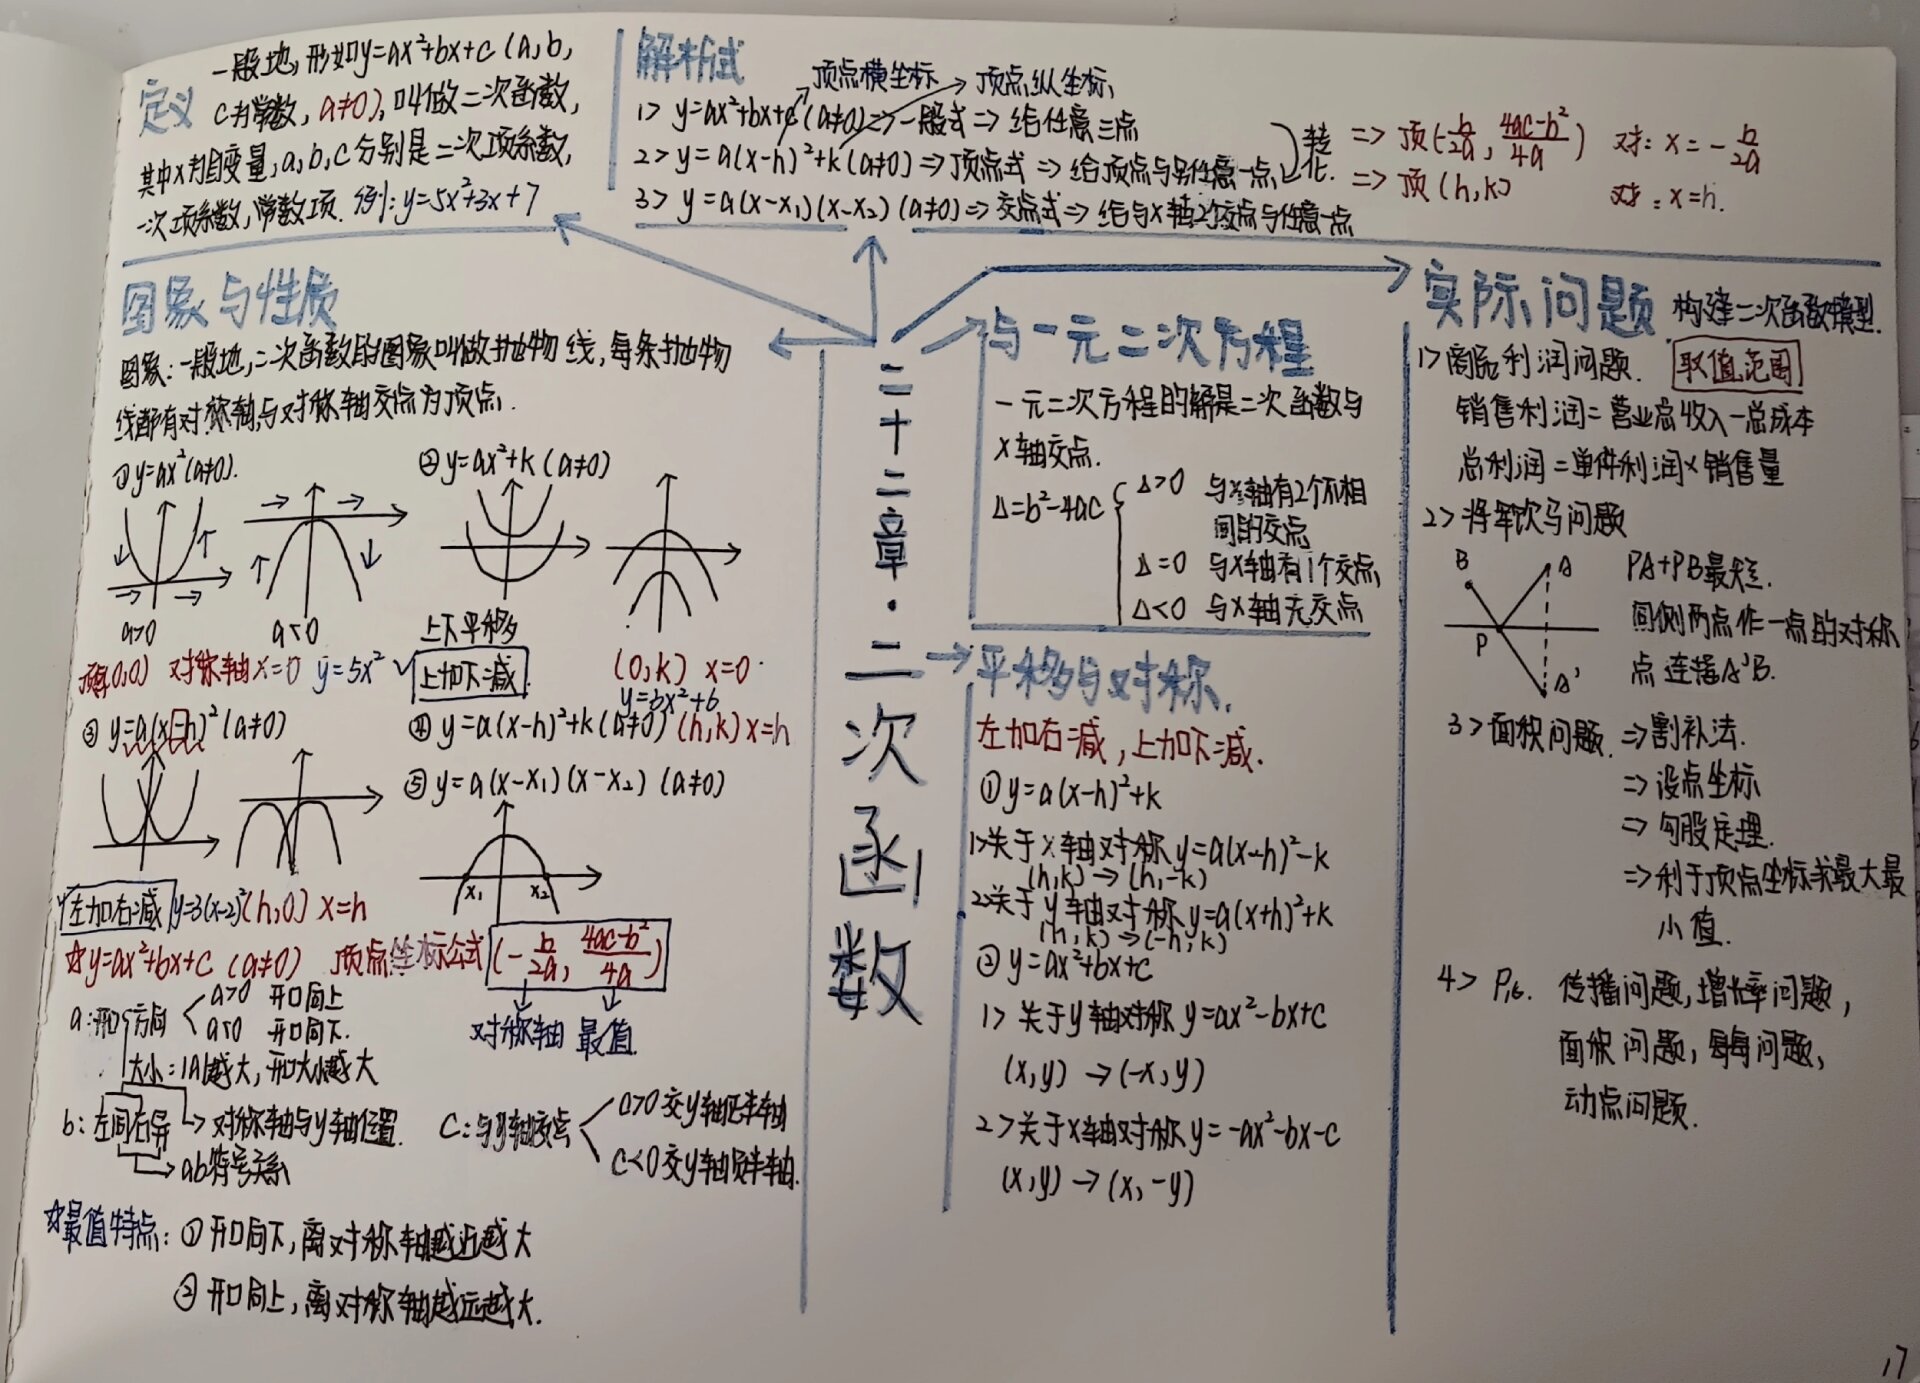 定义
一般地,形如y=ax²+bx+c (a,b,
c为常数, a≠0), 叫做二次函数,
其中x为自变量,a,b,c分别是二次项系数,
一次项系数,常数项. 例: y=5x²+3x+7
解析式
顶点横坐标 → 顶点纵坐标
1> y=ax²+bx+c (a≠0)⇒一般式⇒给任意三点
2> y=a(x-h)²+k (a≠0)⇒顶点式⇒给顶点与另任意一点
3> y=a(x-x₁)(x-x₂) (a≠0)⇒交点式⇒给与x轴2个交点与任意一点
转化.
⇒顶(-b/2a, 4ac-b²/4a) 对: x=-b/2a
⇒顶(h,k) 对: x=h.
图象与性质
图象:一般地,二次函数的图象叫做抛物线,每条抛物
线都有对称轴,与对称轴交点为顶点.
①y=ax²(a≠0).
②y=ax²+k (a≠0)
a>0 a<0
上下平移
顶点(0,0) 对称轴x=0 y=5x²
上加下减
(0,k) x=0
y=6x²+6
③ y=a(x-h)² (a≠0)
④ y=a(x-h)²+k (a≠0) (h,k) x=h
⑤ y=a(x-x₁)(x-x₂) (a≠0)
x₁ x₂
左加右减 y=3(x-2)² (h,0) x=h
☆y=ax²+bx+c (a≠0) 顶点坐标公式(-b/2a, 4ac-b²/4a)
对称轴 最值
a:开口方向 a>0 开口向上
a<0 开口向下.
大小:|A|越大,开口越大
b: 左同右异 → 对称轴与y轴位置.
→ab符号关系
C:与y轴交点 c>0交y轴正半轴
C<0交y轴负半轴.
☆最值特点: ①开口向下,离对称轴越近越大
②开口向上,离对称轴越远越大.
二十二章·二次函数
与一元二次方程
一元二次方程的解是二次函数与
x轴交点.
Δ=b²-4ac
Δ>0 与x轴有2个不相
同的交点
Δ=0 与x轴有1个交点
Δ<0 与x轴无交点
平移与对称.
左加右减,上加下减.
①y=a(x-h)²+k
1>关于x轴对称 y=a(x-h)²-k
(h,k)→(h,-k)
2>关于y轴对称 y=a(x+h)²+k
(h,k)→(-h,k)
②y=ax²+bx+c
1> 关于y轴对称 y=ax²-bx+c
(x,y)→(-x,y)
2>关于x轴对称 y=-ax²-bx-c
(x,y)→(x,-y)
实际问题 构建二次函数模型.
1>商品利润问题. 取值范围
销售利润=营业总收入-总成本
总利润=单件利润×销售量
2>将军饮马问题
B A P A'
PA+PB最短.
同侧两点作一点的对称
点 连接A'B.
3>面积问题 ⇒割补法.
⇒设点坐标
⇒勾股定理.
⇒利于顶点坐标求最大最
小值.
4> 传播问题,增长率问题,
面积问题,每每问题,
动点问题.
17